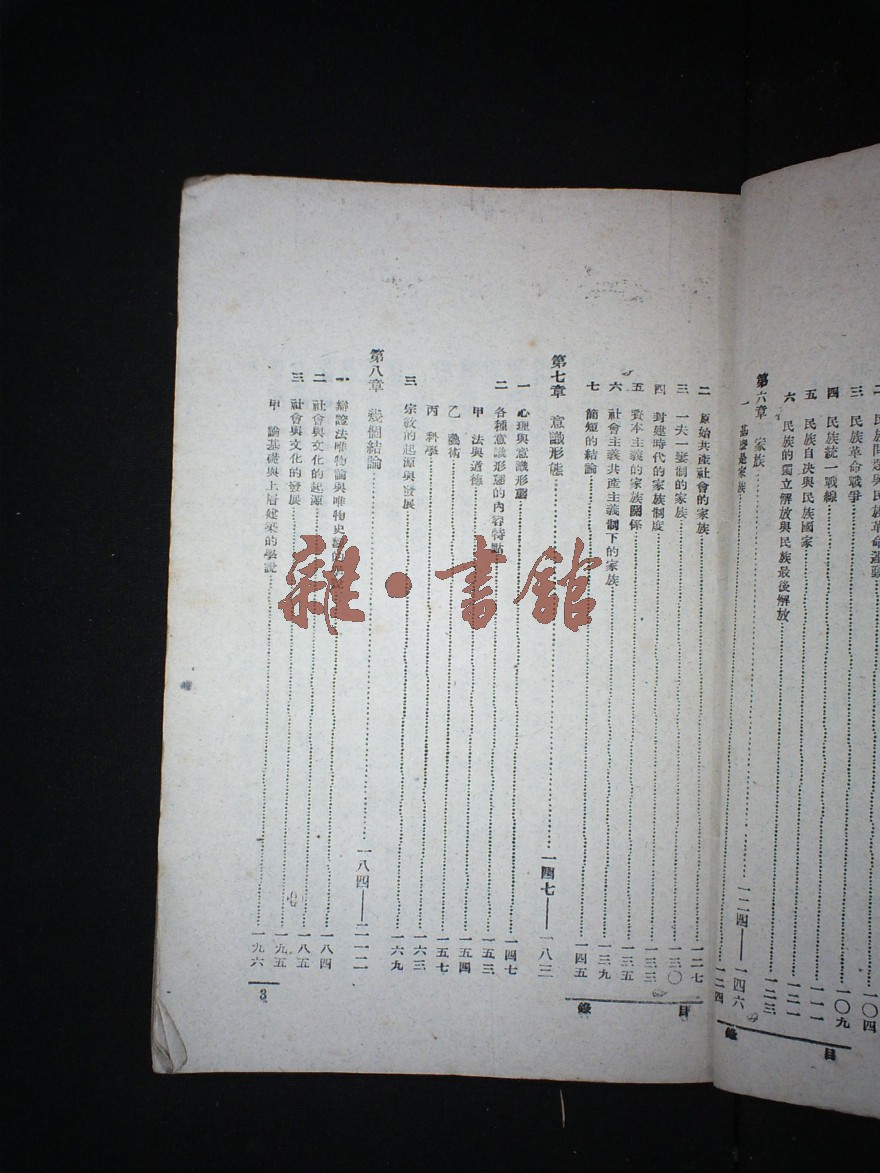 民族問題與民族革命運動 一〇四
三 民族革命戰爭 一〇九
四 民族統一戰線 一一一
五 民族自决與民族國家 一二一
六 民族的獨立解放與民族最後解放 一二三
第六章 家族 一二四——一四六
一 甚麼是家族 一二四
目 錄
二 原始共產社會的家族 一二七
三 一夫一妻制的家族 一三〇
四 封建時代的家族制度 一三三
五 資本主義的家族關係 一三五
六 社會主義共產主義制下的家族 一三九
七 簡短的結論 一四五
第七章 意識形態 一四七——一八三
一 心理與意識形態 一四七
二 各種意識形態的內容特點 一五三
甲 法與道德 一五四
乙 藝術 一五七
丙 科學 一六三
三 宗教的起源與發展 一六九
第八章 幾個結論 一八四——二一二
一 辯證法唯物論與唯物史觀的 一八四
二 社會與文化的起源 一八五
三 社會與文化的發展 一九五
甲 論基礎與上層建築的學說 一九六
目 錄
3
雜·書館